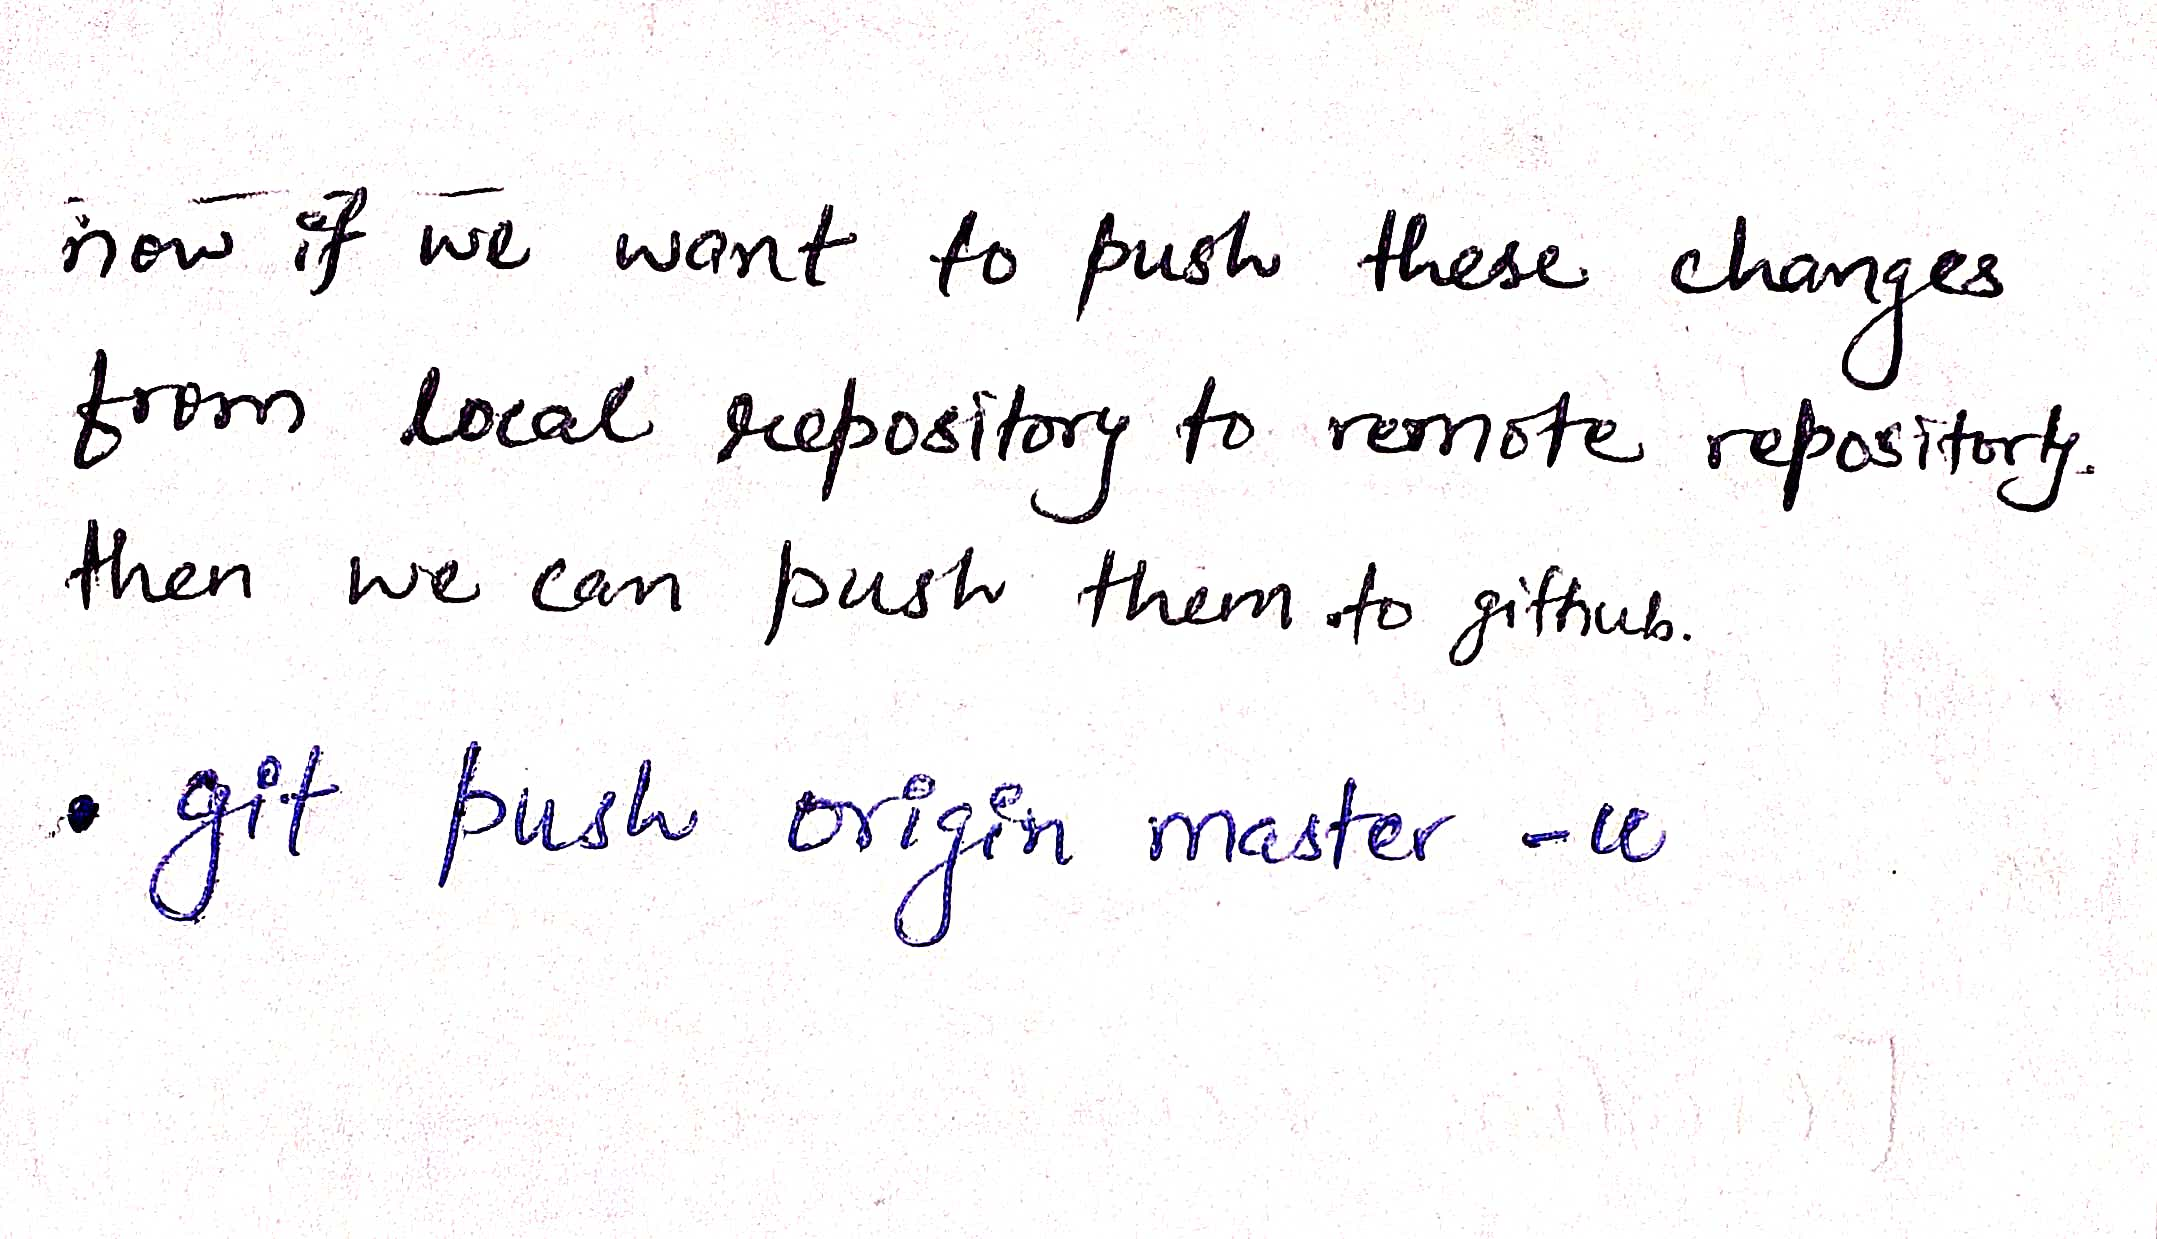 now if we want to push these changes
from local repository to remote repository.
then we can push them to github.
• git push origin master -u